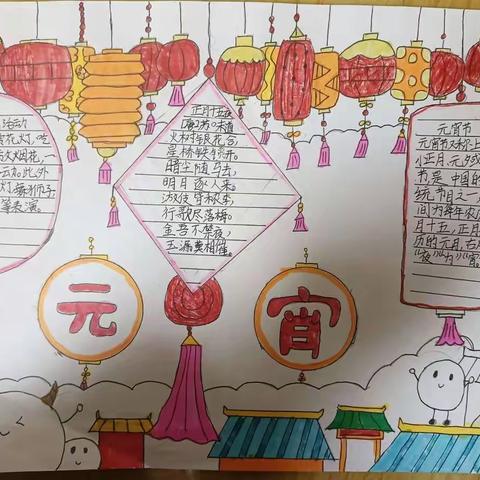 活动
花灯,吃
放烟花,一
此外
灯,舞狮子
等表演。
正月十五夜
唐 苏味道
火树银花合,
星桥铁锁开。
暗尘随马去,
明月逐人来。
游伎皆秾李,
行歌尽落梅。
金吾不禁夜,
玉漏莫相催。
元宵节
元宵节又称上
小正月、元夕或
书是中国的
统节日之一,
间为每年农
月十五,正月
历的元月,古
"夜"为"宵"
元
宵